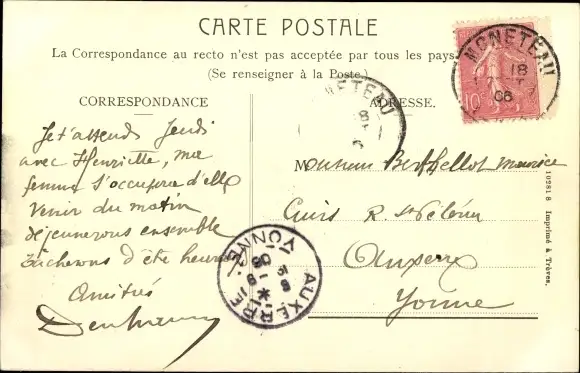 CARTE POSTALE
La Correspondance au recto n'est pas acceptée par tous les pays
(Se renseigner à la Poste.)
CORRESPONDANCE
ADRESSE.
Je t'attends Jeudi
avec Henriette, ma
femme s'occupera d'elle
Venir du matin
déjeunerons ensemble
Tâcherons d'être heureux
Amitiés
Monsieur Berthellot Maurice
Cuirs R. St Pélerin
Auxerre
Yonne
MONETEAU
18
06
10
MONETEAU
AUXERRE
YONNE
10281 8 Imprimé à Trèves.